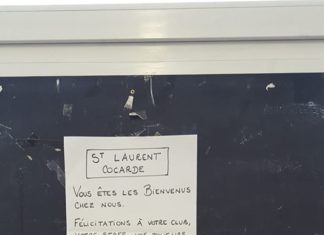 ST LAURENT
COCARDE
VOUS ÊTES LES BIENVENUS
CHEZ NOUS.
FÉLICITATIONS À VOTRE CLUB,
VOTRE